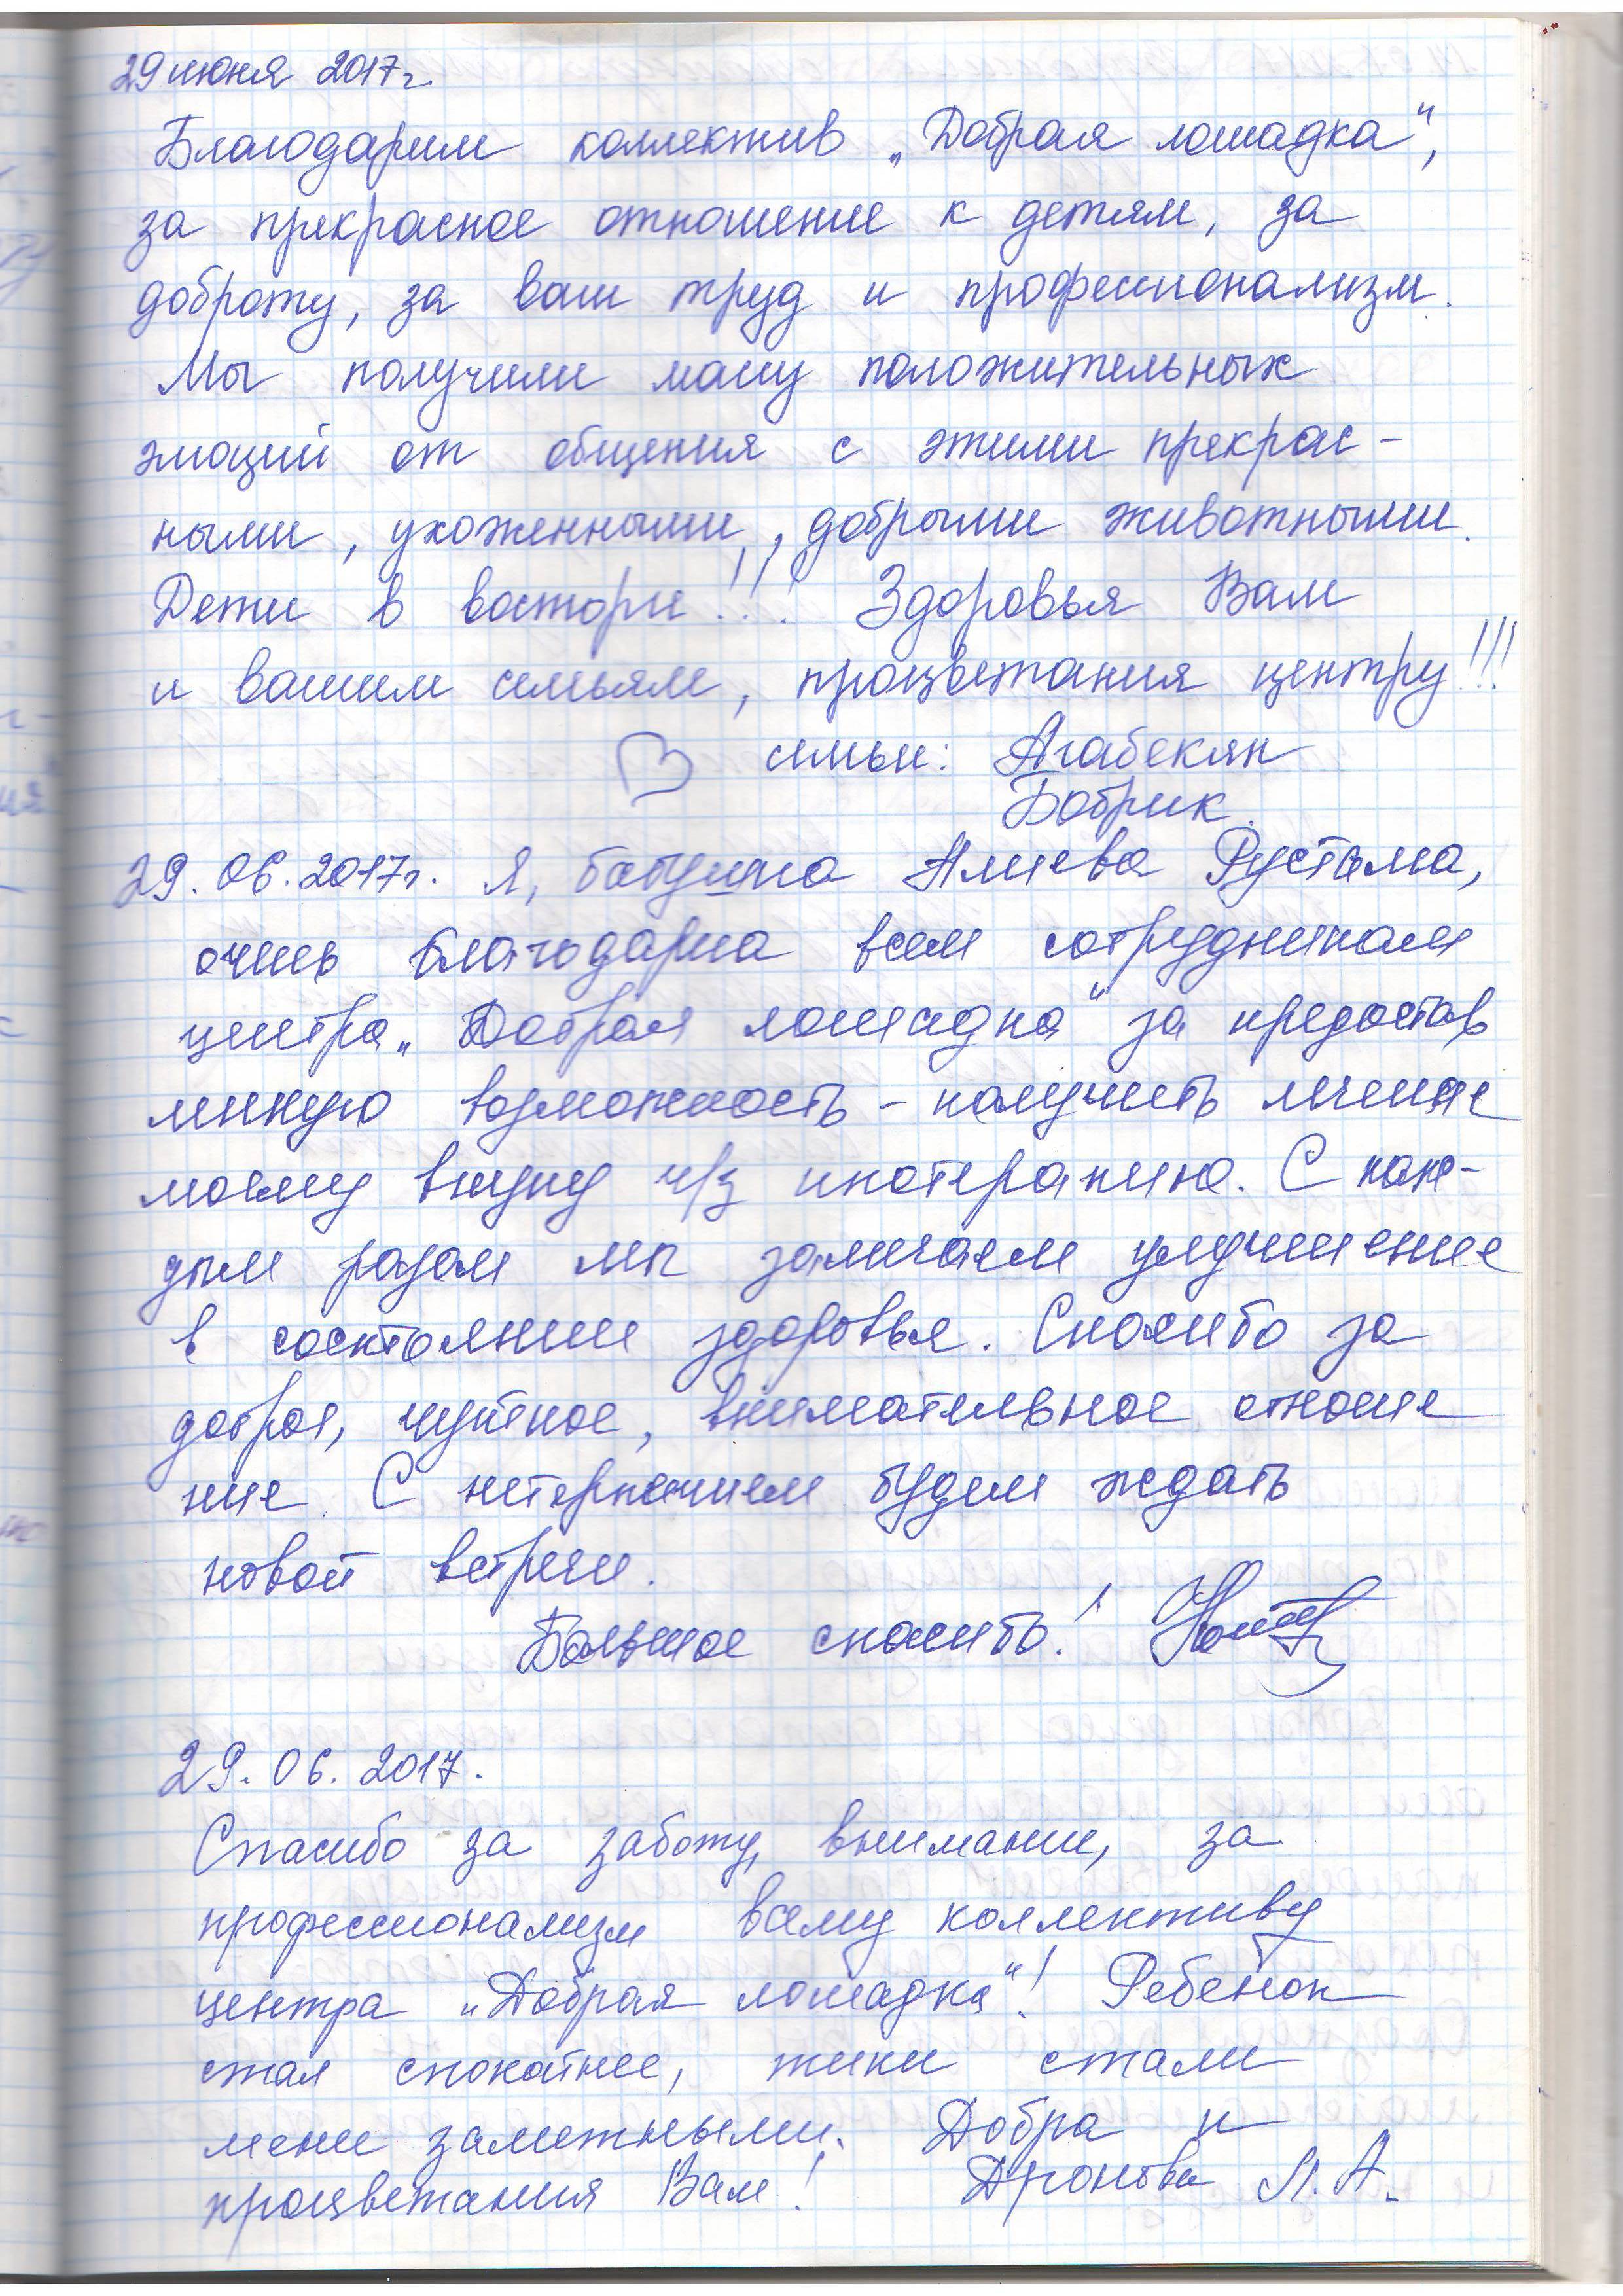 29 июня 2017г.
Благодарим коллектив „Добрая лошадка",
за прекрасное отношение к детям, за
доброту, за ваш труд и профессионализм.
Мы получили массу положительных
эмоций от общения с этими прекрас-
ными, ухоженными, добрыми животными.
Дети в восторге!!! Здоровья Вам
и вашим семьям, процветания центру!!!
семьи: Агабекян
Бобрик.
29.06.2017г. Я, бабушка Алиева Рустама,
очень благодарна всем сотрудникам
центра „Добрая лошадка" за предостав
ленную возможность – получить лечение
моему внуку ч/з ипотерапию. С каж-
дым разом мы замечаем улучшение
в состоянии здоровья. Спасибо за
доброе, чуткое, внимательное отноше
ние. С нетерпением будем ждать
новой встречи.
Большое спасибо!
29.06.2017.
Спасибо за заботу, внимание, за
профессионализм всему коллективу
центра „Добрая лошадка"! Ребёнок
стал спокойнее, тики стали
менее заметными. Добра и
процветания Вам! Дронова Л.А.